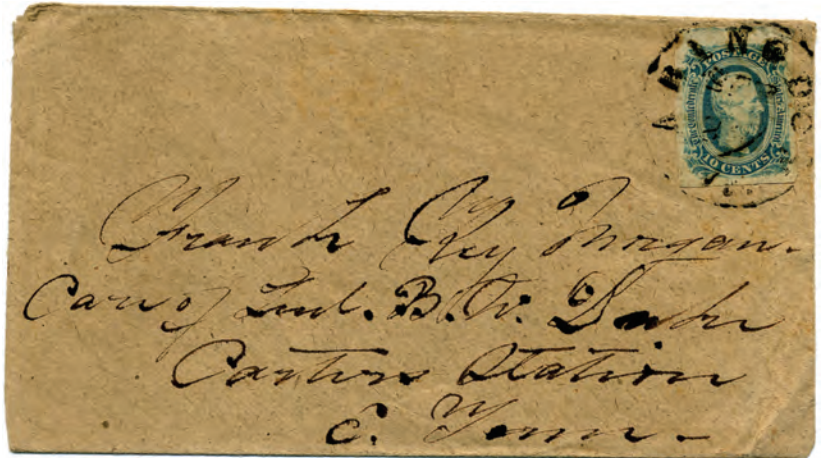 ABINGDO
POSTAGE
The Confederate States of America
10 CENTS
Frank Key Morgan.
Care of Genl. B. W. Duke
Carters Station
E. Tenn-